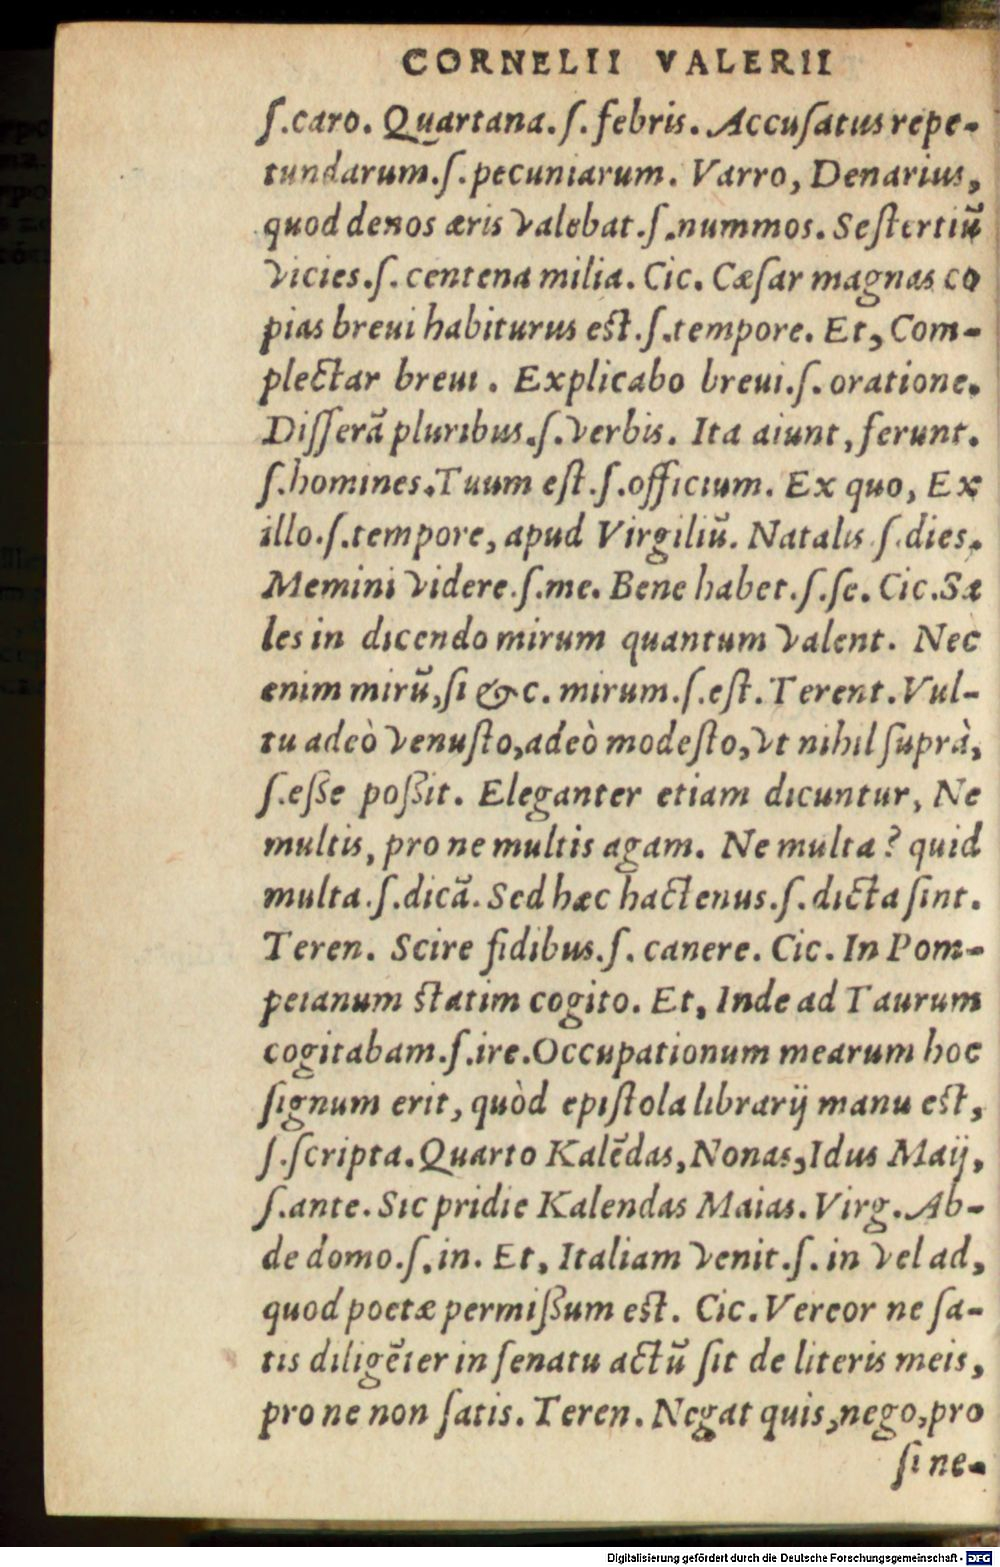 CORNELII VALERII
ſ.caro. Quartana.ſ.febris. Accuſatus repe-
tundarum.ſ.pecuniarum. Varro, Denarius,
quod denos æris valebat.ſ.nummos. Seſtertiũ
vicies.ſ. centena milia. Cic. Cæſar magnas co
pias breui habiturus eſt.ſ.tempore. Et, Com-
plectar breui. Explicabo breui.ſ. oratione.
Diſſerã pluribus.ſ.verbis. Ita aiunt, ferunt.
ſ.homines.Tuum eſt.ſ.officium. Ex quo, Ex
illo.ſ.tempore, apud Virgiliũ. Natalis.ſ.dies.
Memini videre.ſ.me. Bene habet.ſ.ſe. Cic.Sa
les in dicendo mirum quantum valent. Nec
enim mirũ,ſi &c. mirum.ſ.eſt. Terent. Vul-
tu adeò venuſto,adeò modeſto,vt nihil ſuprà,
ſ.eſſe poſſit. Eleganter etiam dicuntur, Ne
multis, pro ne multis agam. Ne multa? quid
multa.ſ.dicã. Sed hæc hactenus.ſ.dicta ſint.
Teren. Scire fidibus.ſ. canere. Cic. In Pom-
peianum ſtatim cogito. Et, Inde ad Taurum
cogitabam.ſ.ire.Occupationum mearum hoc
ſignum erit, quòd epiſtola librarij manu eſt,
ſ.ſcripta.Quarto Kalẽdas,Nonas,Idus Maij,
ſ.ante. Sic pridie Kalendas Maias. Virg. Ab-
de domo.ſ.in. Et, Italiam venit.ſ. in vel ad,
quod poetæ permiſſum eſt. Cic. Vereor ne ſa-
tis diligẽter in ſenatu actũ ſit de literis meis,
pro ne non ſatis. Teren. Negat quis,nego,pro
ſi ne-
Digitalisierung gefördert durch die Deutsche Forschungsgemeinschaft - DFG